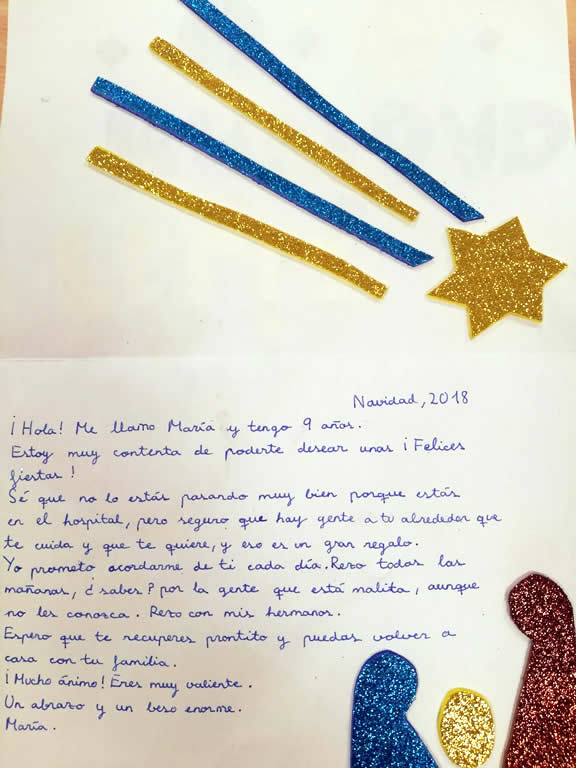 Navidad, 2018
¡Hola! Me llamo María y tengo 9 años.
Estoy muy contenta de poderte desear unas ¡Felices
fiestas!
Sé que no lo estás pasando muy bien porque estás
en el hospital, pero seguro que hay gente a tu alrededor que
te cuida y que te quiere, y eso es un gran regalo.
Yo prometo acordarme de ti cada día. Rezo todas las
mañanas, ¿sabes? por la gente que está malita, aunque
no les conozca. Rezo con mis hermanos.
Espero que te recuperes prontito y puedas volver a
casa con tu familia.
¡Mucho ánimo! Eres muy valiente.
Un abrazo y un beso enorme.
María.